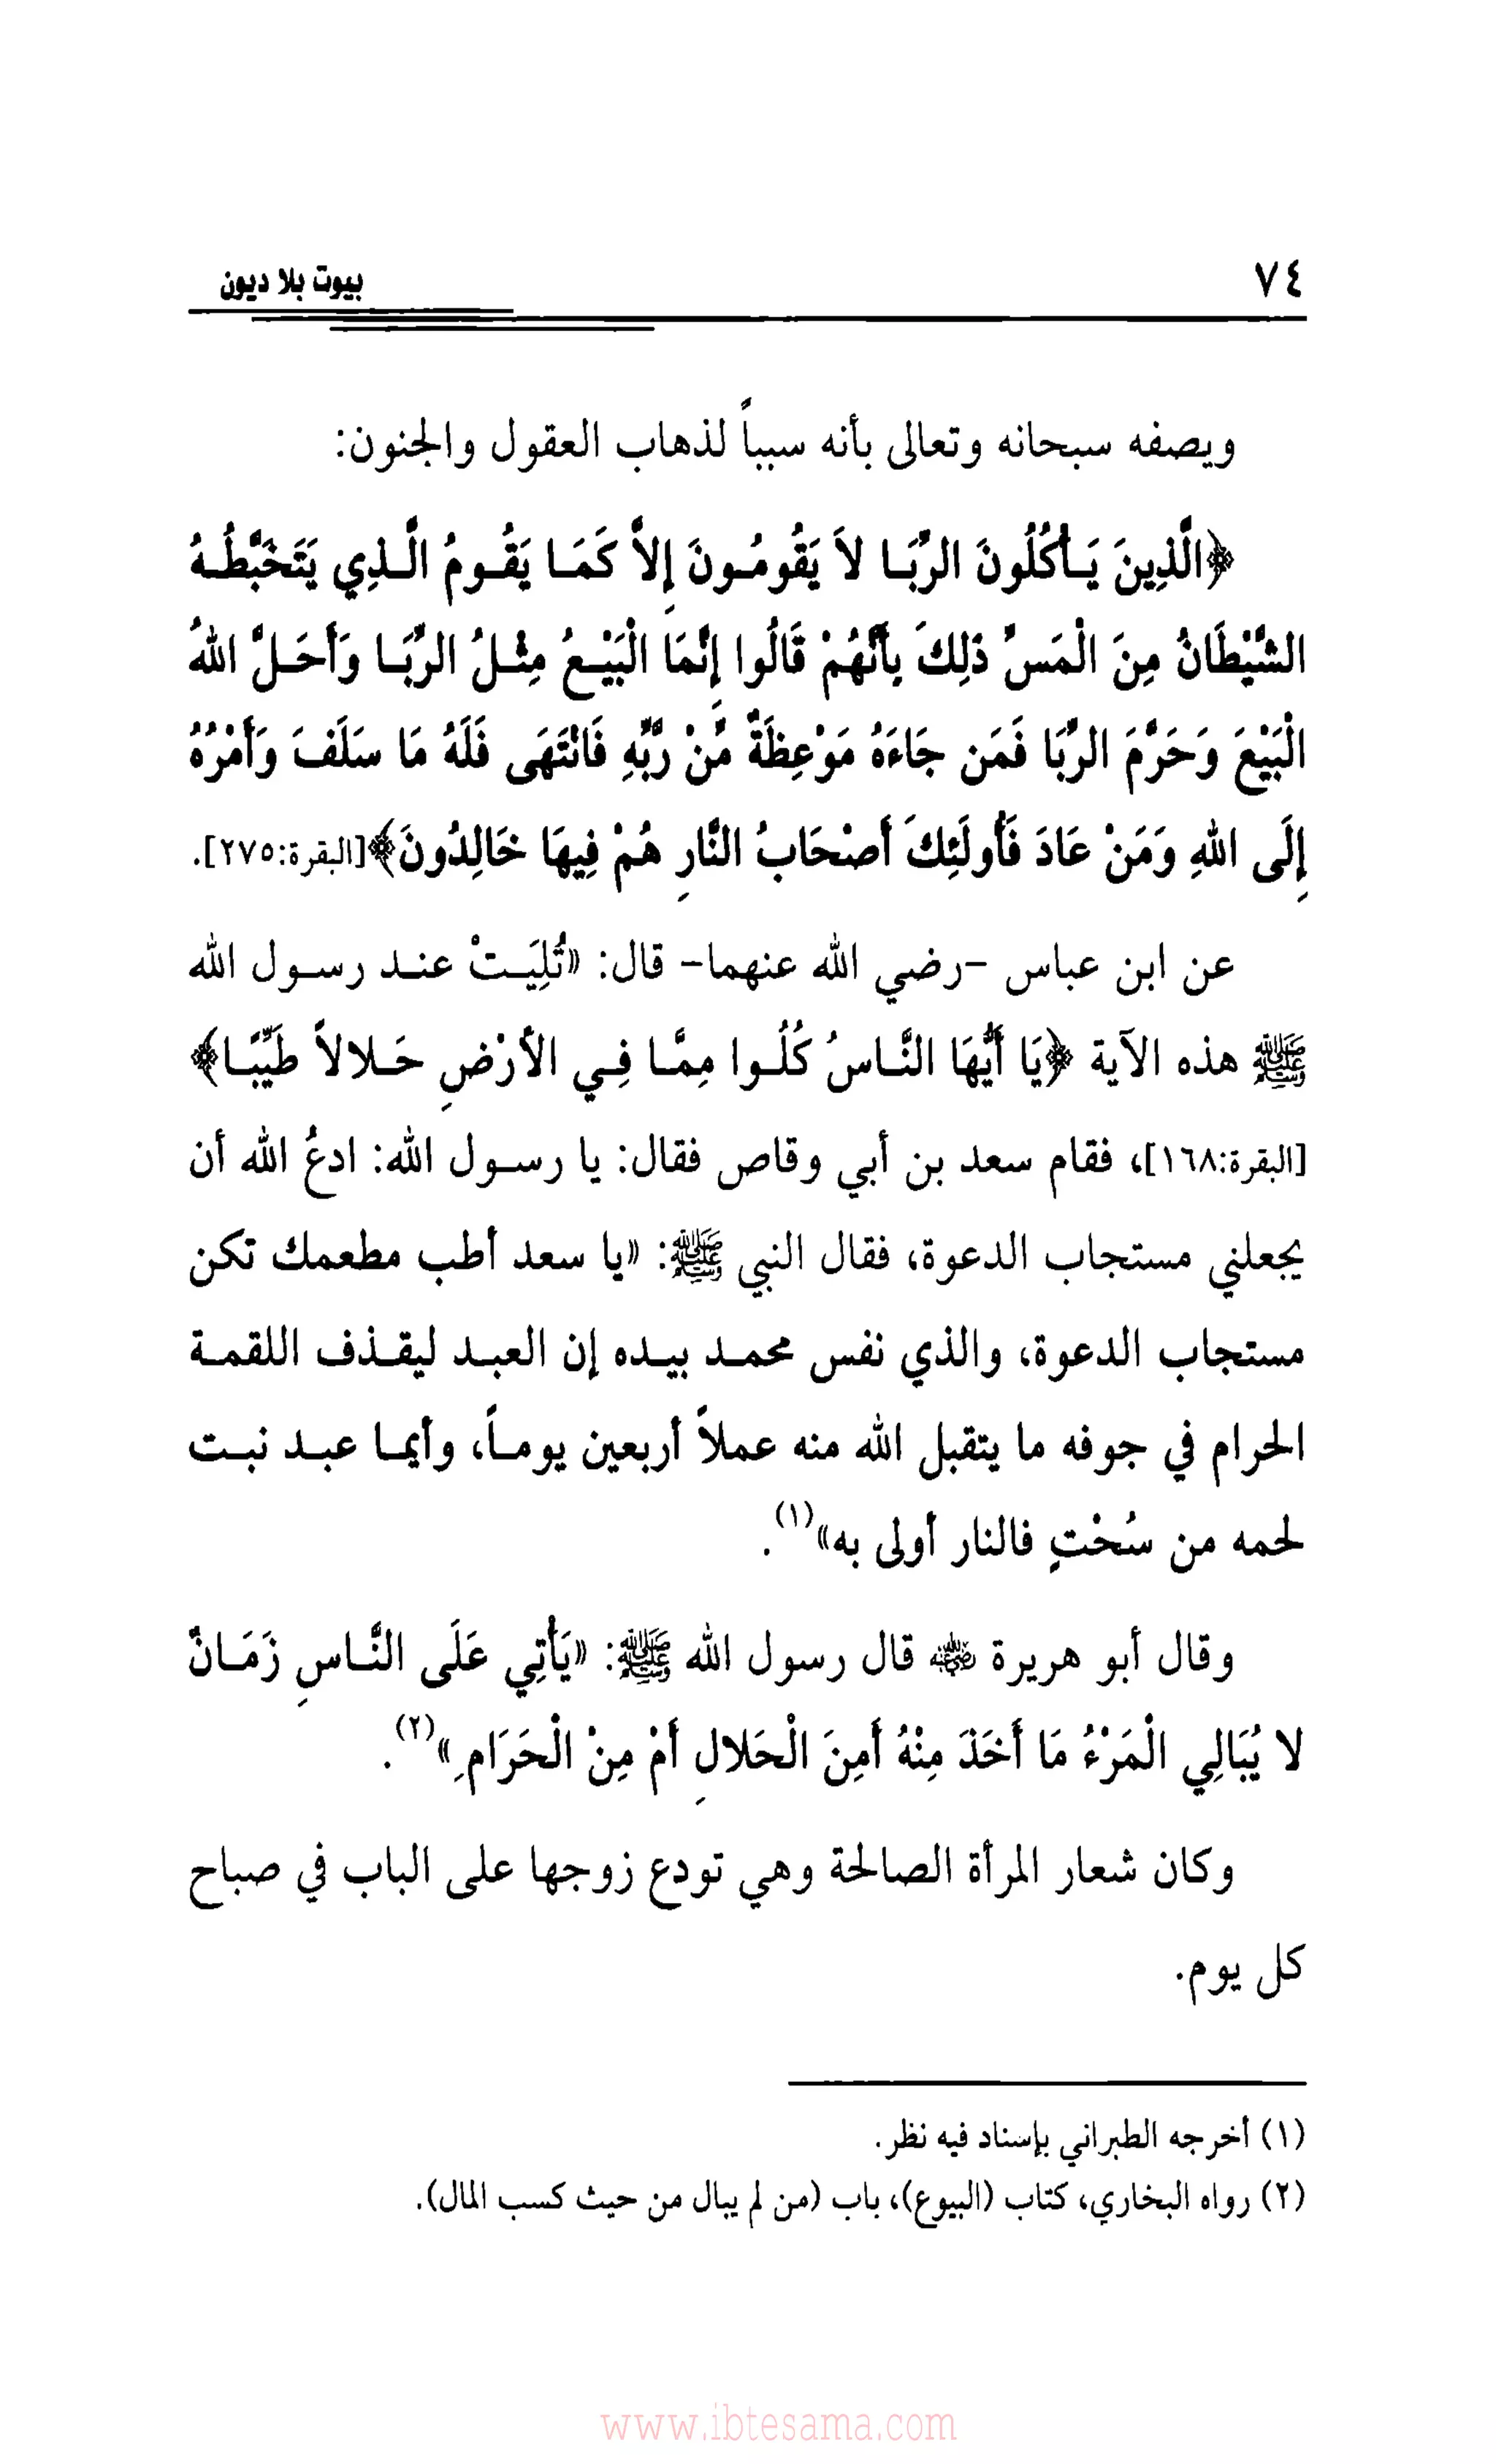 ٧٤
بيوت بلا ديون
ويصفه سبحانه وتعالى بأنه سبباً لذهاب العقول والجنون:
﴿الَّذِينَ يَأْكُلُونَ الرِّبَا لاَ يَقُومُونَ إِلاَّ كَمَا يَقُومُ الَّذِي يَتَخَبَّطُهُ
الشَّيْطَانُ مِنَ الْمَسِّ ذَلِكَ بِأَنَّهُمْ قَالُوا إِنَّمَا الْبَيْعُ مِثْلُ الرِّبَا وَأَحَلَّ اللهُ
الْبَيْعَ وَحَرَّمَ الرِّبَا فَمَن جَاءَهُ مَوْعِظَةٌ مِّنْ رَبِّهِ فَانْتَهَى فَلَهُ مَا سَلَفَ وَأَمْرُهُ
إِلَى اللهِ وَمَنْ عَادَ فَأُولَئِكَ أَصْحَابُ النَّارِ هُمْ فِيهَا خَالِدُونَ﴾[البقرة:٢٧٥].
عن ابن عباس -رضي الله عنهما- قال: «تُلِيَتْ عند رسول الله
ﷺ هذه الآية ﴿يَا أَيُّهَا النَّاسُ كُلُوا مِمَّا فِي الأَرْضِ حَلالاً طَيِّبًا﴾
[البقرة:١٦٨]، فقام سعد بن أبي وقاص فقال: يا رسول الله: ادعُ الله أن
يجعلني مستجاب الدعوة، فقال النبي ﷺ: «يا سعد أطب مطعمك تكن
مستجاب الدعوة، والذي نفس محمد بيده إن العبد ليقذف اللقمة
الحرام في جوفه ما يتقبل الله منه عملاً أربعين يوماً، وأيما عبد نبت
لحمه من سُحْتٍ فالنار أولى به»(١).
وقال أبو هريرة ﵁ قال رسول الله ﷺ: «يَأْتِي عَلَى النَّاسِ زَمَانٌ
لا يُبَالِي الْمَرْءُ مَا أَخَذَ مِنْهُ أَمِنَ الْحَلالِ أَمْ مِنْ الْحَرَامِ»(٢).
وكان شعار المرأة الصالحة وهي تودع زوجها على الباب في صباح
كل يوم.
(١) أخرجه الطبراني بإسناد فيه نظر.
(٢) رواه البخاري، كتاب (البيوع)، باب (من لم يبال من حيث كسب المال).
www.ibtesama.com